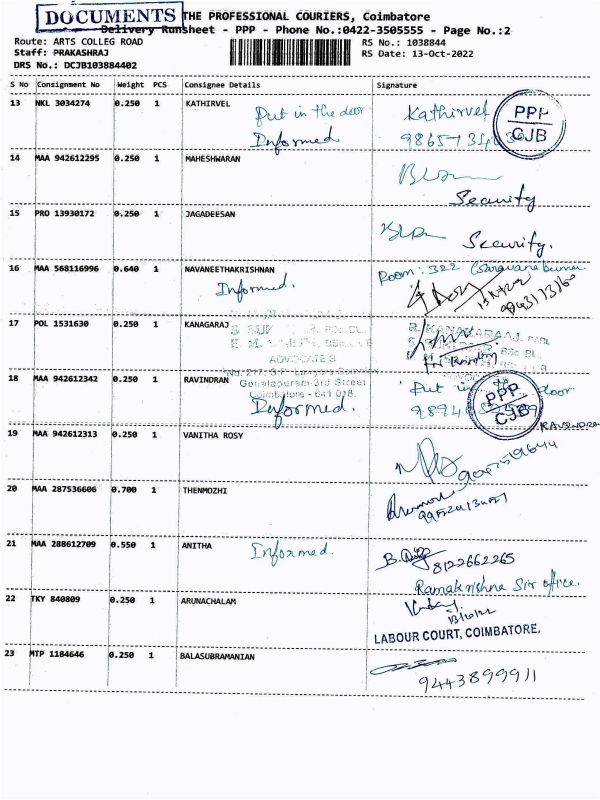 DOCUMENTS
THE PROFESSIONAL COURIERS, Coimbatore
Delivery Runsheet - PPP - Phone No.:0422-3505555 - Page No.:2
Route: ARTS COLLEG ROAD
RS No.: 1038844
Staff: PRAKASHRAJ
RS Date: 13-Oct-2022
DRS No.: DCJB103884402
S No Consignment No Weight PCS Consignee Details Signature
13 NKL 3034274 0.250 1 KATHIRVEL
Put in the door
Informed
Kathirvel
PPP
CJB
14 MAA 942612295 0.250 1 MAHESHWARAN
Security
15 PRO 13930172 0.250 1 JAGADEESAN
Security.
16 MAA 568116996 0.640 1 NAVANEETHAKRISHNAN
Informed.
Room: 322
17 POL 1531630 0.250 1 KANAGARAJ
ADVOCATES
Gopalapuram 3rd Street
Coimbatore - 641 018.
18 MAA 942612342 0.250 1 RAVINDRAN
Informed.
Put in the door
PPP
CJB
19 MAA 942612313 0.250 1 VANITHA ROSY
20 MAA 287536606 0.700 1 THENMOZHI
21 MAA 288612709 0.550 1 ANITHA
Informed.
8122662265
Ramakrishna Sir office.
22 TKY 840809 0.250 1 ARUNACHALAM
13/10/22
LABOUR COURT, COIMBATORE.
23 MTP 1184646 0.250 1 BALASUBRAMANIAN
9443899911